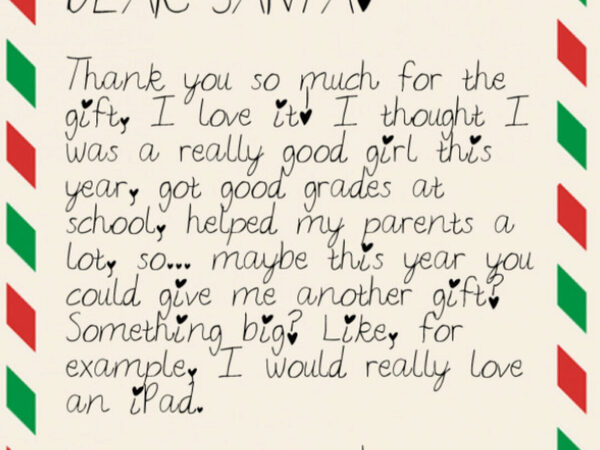 DEAR SANTA!
Thank you so much for the
gift, I love it! I thought I
was a really good girl this
year, got good grades at
school, helped my parents a
lot, so... maybe this year you
could give me another gift?
Something big? Like, for
example, I would really love
an iPad.